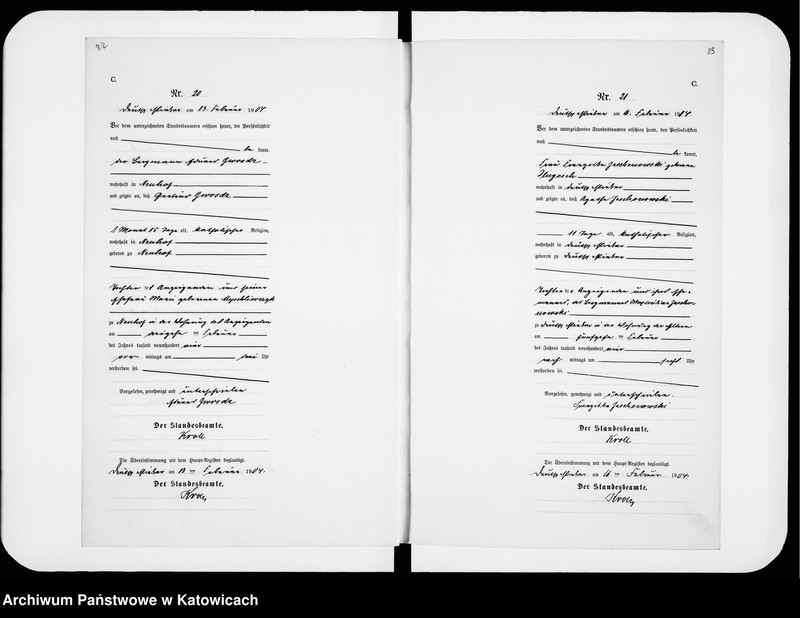 22
C.
Nr. 20
Deutsch Piekar am 13. Februar 1904
Vor dem unterzeichneten Standesbeamten erschien heute, der Persönlichkeit
nach
be kannt,
der Bergmann Eduard Gwosdz
wohnhaft in Neuhof
und zeigte an, daß Gwosdz
1 Monat 15 Tage alt, katholischer Religion,
wohnhaft in Neuhof
geboren zu Neuhof
Tochter des Anzeigenden und seiner
Ehefrau Marie geborenen
zu Neuhof in der Wohnung des Anzeigenden
am Februar
des Jahres tausend neunhundert vier
vor mittags um Uhr
verstorben sei.
Vorgelesen, genehmigt und unterschrieben
Eduard Gwosdz
Der Standesbeamte.
Kroll
Die Übereinstimmung mit dem Haupt-Register beglaubigt.
Deutsch Piekar am 13 ten Februar 1904.
Der Standesbeamte.
Kroll
23
C.
Nr. 21
Deutsch Piekar am Februar 1904
Vor dem unterzeichneten Standesbeamten erschien heute, der Persönlichkeit
nach
be kannt,
Frau Franziska Jeschonowski geborene
wohnhaft in Deutsch Piekar
und zeigte an, daß Agathe Jeschonowski
11 Tage alt, katholischer Religion,
wohnhaft in Deutsch Piekar
geboren zu Deutsch Piekar
Tochter der Anzeigenden und ihres Ehe-
mannes, des Bergmannes Maximilian Jescho-
nowski
zu Deutsch Piekar in der Wohnung der Eltern
am fünfzehn ten Februar
des Jahres tausend neunhundert vier
nach mittags um Uhr
verstorben sei.
Vorgelesen, genehmigt und unterschrieben.
Franziska Jeschonowski
Der Standesbeamte.
Kroll
Die Übereinstimmung mit dem Haupt-Register beglaubigt.
Deutsch Piekar am ten Februar 1904
Der Standesbeamte.
Kroll
Archiwum Państwowe w Katowicach